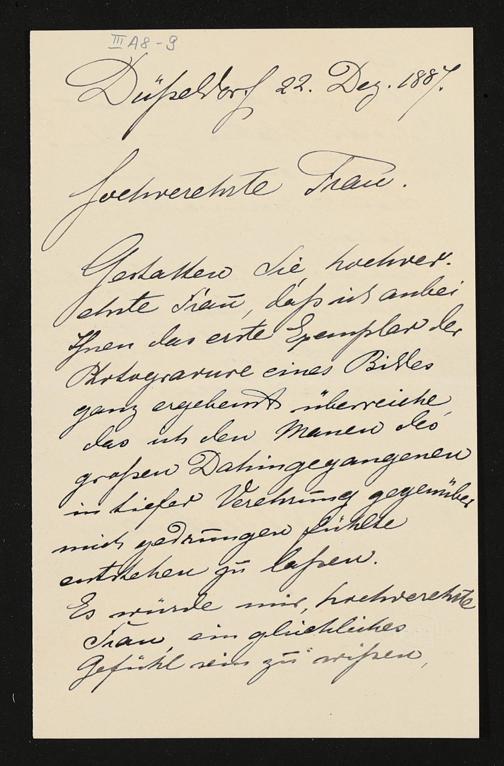 III A8-9
Düßeldorf 22. Dez. 1887.
Hochverehrte Frau.
Gestatten Sie hochver-
ehrte Frau, daß ich anbei
Ihnen das erste Exemplar der
Photogravure eines Bildes
ganz ergebenst überreiche
das ich den Manen des
großen Dahingegangenen
in tiefer Verehrung gegenüber
mich gedrungen fühlte
entstehen zu laßen.
Es würde mir, hochverehrte
Frau, ein glückliches
Gefühl sein zu wißen,